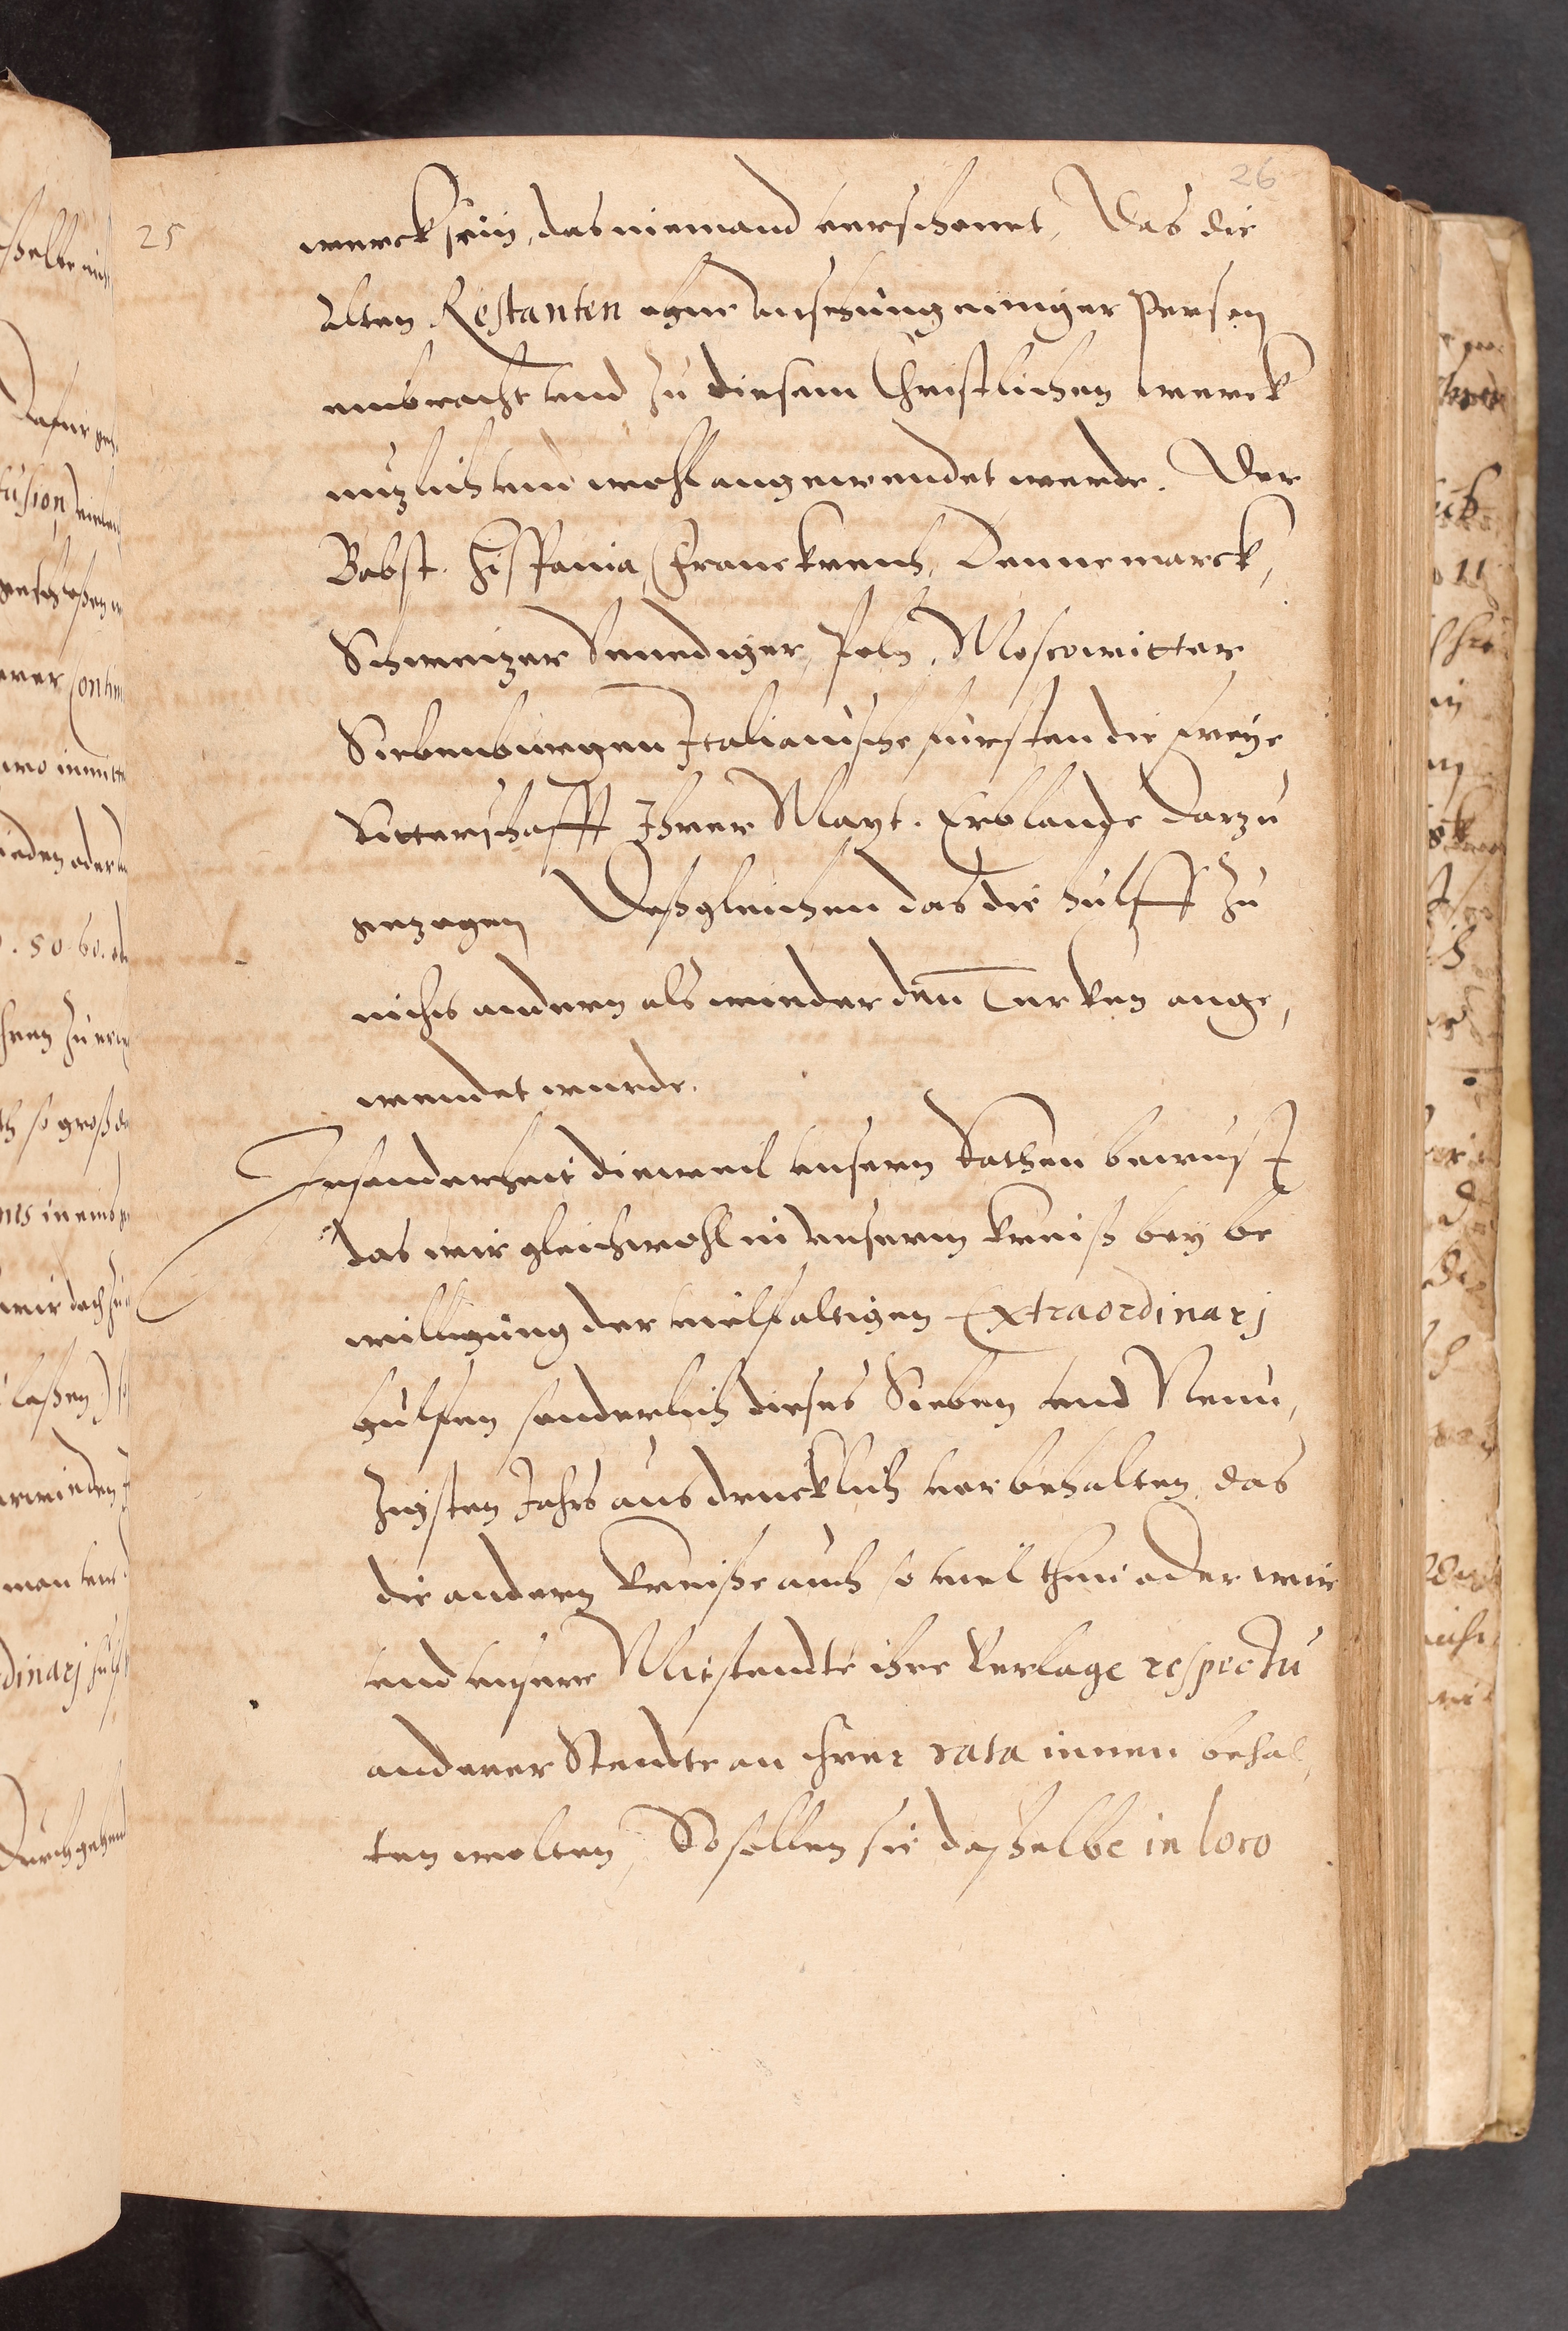 26
25
werck sein, das niemand verschonet, Das die
alten Restanten ohne ansehung einiger Person
einbracht vnd zu diesem Christlichen werck
nuzlich vnd wohl angewendet werde. Der
Babst. Hispania, Franckreich, Dennemarck,
Schweizer Venediger, Poln, Moscowitter
Siebenburgen Italianische fursten die freye
Ritterschafft Ihrer Mayt. Erblande darzu
gezogen Deßgleichen das die hulff zu
nichts andern als wieder den Turken ange,
wendet wurde.
Insonderheit dieweil vnsern Rathen bewust
das wir gleichwohl in vnserm kreiß bey be
willigung der vielfaltigen Extraordinarj
hulfen sonderlich dieses Sieben vnd Neun,
zigsten Jahrs ausdrucklich vorbehalten, das
die andern kreiße auch so viel thun oder wir
vnd vnsere Mitstendte ihre Verlage respectu
anderer Stendte an ihrer rata innen behal,
ten wolten, So sollen sie dasselbe in loco